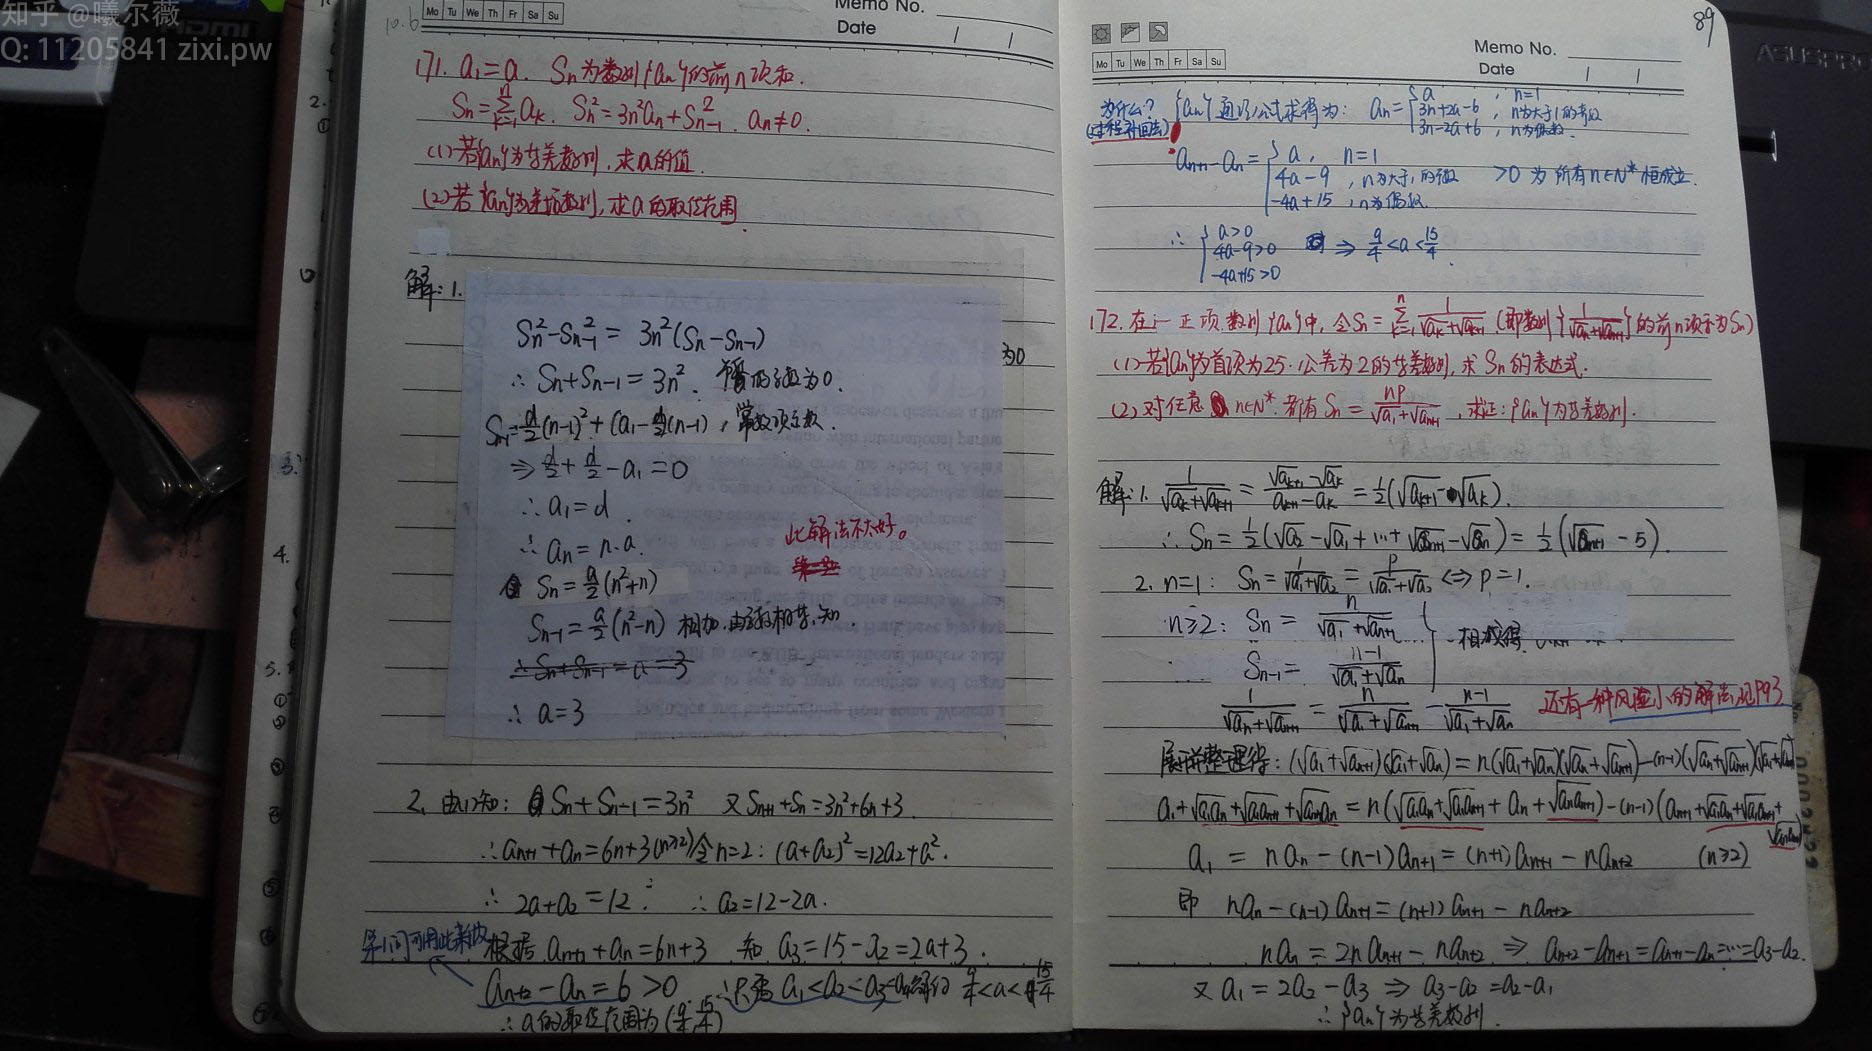 知乎 @曦尔薇
Q: 11205841 zixi.pw
10.6
Mo Tu We Th Fr Sa Su
Memo No.
Date / /
171. a₁=a. Sₙ为数列{aₙ}的前n项和.
Sₙ=∑ₖ₌₁ⁿaₖ. Sₙ²=3n²aₙ+Sₙ₋₁². aₙ≠0.
(1)若{aₙ}为等差数列,求a的值.
(2)若{aₙ}为递增数列,求a的取值范围.
解: 1.
Sₙ²-Sₙ₋₁²=3n²(Sₙ-Sₙ₋₁)
为0
∴ Sₙ+Sₙ₋₁=3n².
Sₙ₋₁=d/2(n-1)²+(a₁-d/2)(n-1), 常数项
⇒ d/2+d/2-a₁=0
∴ a₁=d.
∴ aₙ=n·a.
此解法不太好。
Sₙ=a/2(n²+n)
Sₙ₋₁=a/2(n²-n) 相加.
∴ Sₙ+Sₙ₋₁=a=3
∴ a=3
2. 由(1)知: Sₙ+Sₙ₋₁=3n² 又Sₙ₊₁+Sₙ=3n²+6n+3.
∴aₙ₊₁+aₙ=6n+3(n≥2)令n=2: (a+a₂)²=12a₂+a².
∴ 2a+a₂=12. ∴ a₂=12-2a.
第1问可用此来做
根据 aₙ₊₁+aₙ=6n+3 知 a₃=15-a₂=2a+3.
aₙ₊₂-aₙ=6>0. ∴只需 a₁<a₂<a₃<a₄解得 9/4<a<15/4
∴a的取值范围为(9/4, 15/4)
89
Mo Tu We Th Fr Sa Su
Memo No.
Date / /
ASUSPRO
为什么?
(过程补回去)
{aₙ}通项公式求得为: aₙ={a, n=1
3n+2a-6, n为大于1的奇数
3n-2a+6, n为偶数.
aₙ₊₁-aₙ={a, n=1
4a-9, n为大于1的奇数 >0 为所有n∈N*恒成立.
-4a+15, n为偶数.
∴ {a>0
4a-9>0 ⇒ 9/4<a<15/4.
-4a+15>0
172. 在 正项数列{aₙ}中,令Sₙ=∑ₖ₌₁ⁿ 1/(√aₖ+√aₖ₊₁) (即数列{1/(√aₙ+√aₙ₊₁)}的前n项和为Sₙ)
(1)若{aₙ}为首项为25.公差为2的等差数列,求Sₙ的表达式.
(2)对任意 n∈N*.都有Sₙ=np/(√a₁+√aₙ₊₁),求证:{aₙ}为等差数列.
解: 1. 1/(√aₖ+√aₖ₊₁)=(√aₖ₊₁-√aₖ)/(aₖ₊₁-aₖ)=1/2(√aₖ₊₁-√aₖ).
∴ Sₙ=1/2(√a₂-√a₁+…+√aₙ₊₁-√aₙ)=1/2(√aₙ₊₁-5).
2. n=1: Sₙ=1/(√a₁+√a₂)=p/(√a₁+√a₂)⇔p=1.
n≥2: Sₙ=n/(√a₁+√aₙ₊₁)
相减得
Sₙ₋₁=(n-1)/(√a₁+√aₙ)
1/(√aₙ+√aₙ₊₁)=n/(√a₁+√aₙ₊₁)-(n-1)/(√a₁+√aₙ)
还有一种风险小的解法见P93
展开并整理得: (√a₁+√aₙ₊₁)(√a₁+√aₙ)=n(√a₁+√aₙ)(√aₙ+√aₙ₊₁)-(n-1)(√aₙ+√aₙ₊₁)(√a₁+√aₙ₊₁)
a₁+√a₁aₙ+√a₁aₙ₊₁+√aₙ₊₁aₙ=n(√a₁aₙ+√a₁aₙ₊₁+aₙ+√aₙaₙ₊₁)-(n-1)(aₙ₊₁+√a₁aₙ+√a₁aₙ₊₁+√aₙaₙ₊₁)
a₁=naₙ-(n-1)aₙ₊₁=(n+1)aₙ₊₁-naₙ₊₂ (n≥2)
即 naₙ-(n-1)aₙ₊₁=(n+1)aₙ₊₁-naₙ₊₂
naₙ=2naₙ₊₁-naₙ₊₂ ⇒ aₙ₊₂-aₙ₊₁=aₙ₊₁-aₙ=…=a₃-a₂.
又 a₁=2a₂-a₃ ⇒ a₃-a₂=a₂-a₁
∴{aₙ}为等差数列.